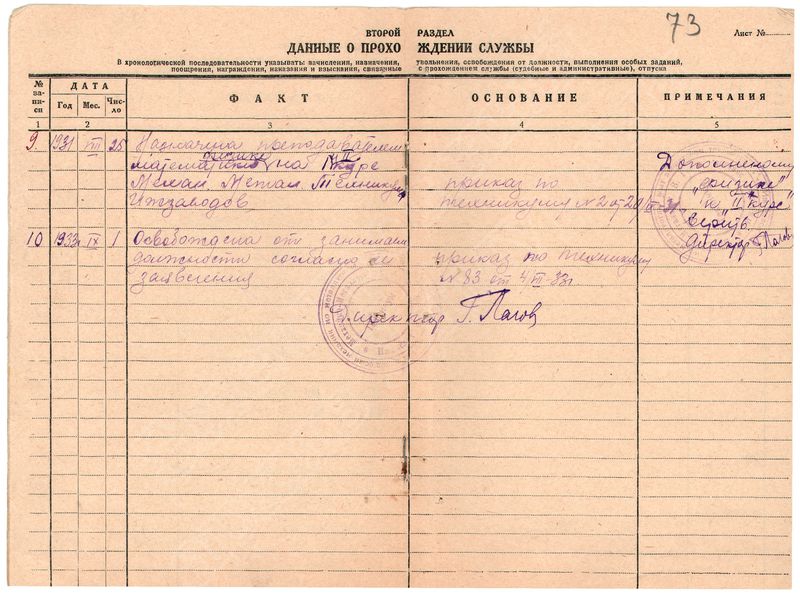 73
ВТОРОЙ РАЗДЕЛ
Лист №
ДАННЫЕ О ПРОХОЖДЕНИИ СЛУЖБЫ
В хронологической последовательности указывать: зачисления, назначения, увольнения, освобождения от должности, выполнения особых заданий,
поощрения, награждения, наказания и взыскания, связанные с прохождением службы (судебные и административные), отпуска
№ за-пи-си
ДАТА
Год Мес. Чис-ло
ФАКТ
ОСНОВАНИЕ
ПРИМЕЧАНИЯ
1 2 3 4 5
9. 1931 VIII 25 Назначена преподавателем
физике II
математики на курс
Механ. Метал. Техникума
Ижзаводов
приказ по
техникуму N 2 от
Дополненому
"физике"
и "II курс"
верить.
Директор Г. Лагов
10 1933г IX 1 Освобождена от занимаем
должности согласно ее
заявления
приказ по техникуму
N 83 от 4 33г.
Директор Г. Лагов